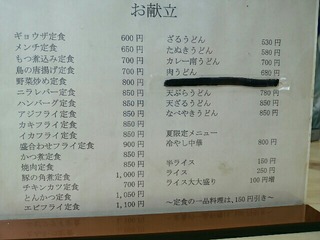 お献立
ギョウザ定食 600円
メンチ定食 650円
もつ煮込み定食 700円
鳥の唐揚げ定食 700円
野菜炒め定食 800円
ニラレバー定食 800円
ハンバーグ定食 850円
アジフライ定食 850円
カキフライ定食 850円
イカフライ定食 850円
盛合わせフライ定食 900円
かつ煮定食 850円
焼肉定食 850円
豚の角煮定食 1,000円
チキンカツ定食 700円
とんかつ定食 1,050円
エビフライ定食 1,100円
ざるうどん 530円
たぬきうどん 580円
カレー南うどん 700円
肉うどん 680円
天ぷらうどん 780円
天ざるうどん 850円
なべやきうどん 850円
夏限定メニュー
冷やし中華 800円
半ライス 150円
ライス 250円
ライス大大盛り 100円増
～定食の一品料理は、150円引き～